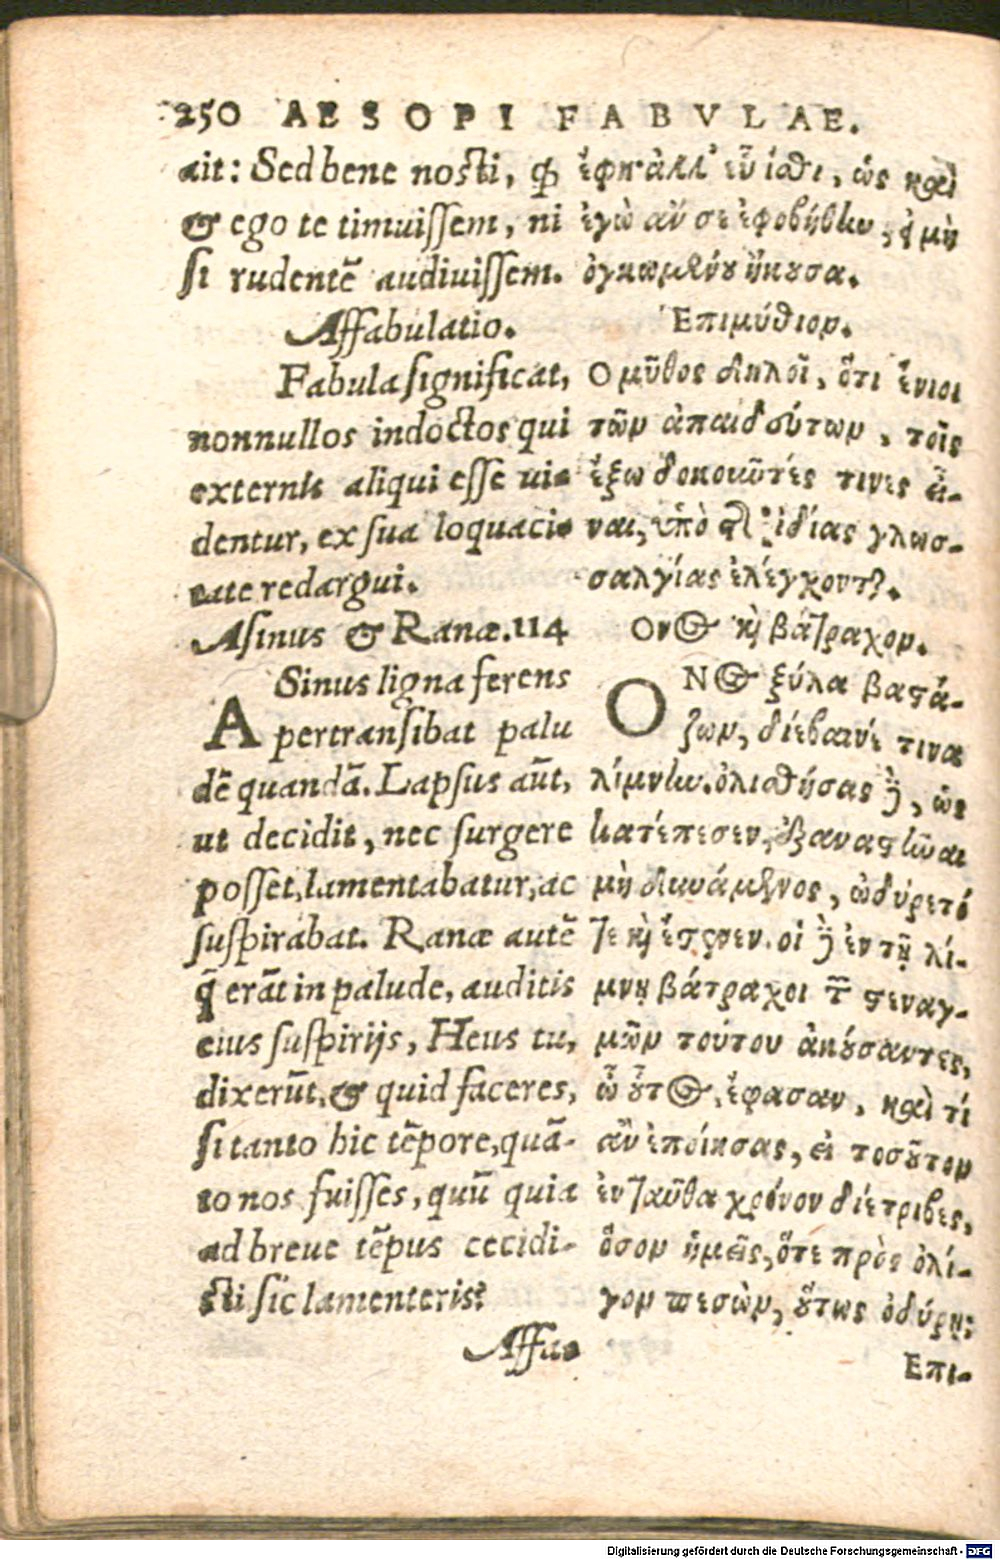 250 AESOPI FABVLAE.
ait: Sed bene nosti, ꝙ
& ego te timuissem, ni
si rudentē audiuissem.
Affabulatio.
Fabula significat,
nonnullos indoctos qui
externis aliqui esse ui-
dentur, ex sua loquaci-
tate redargui.
Asinus & Ranæ. 114
ASinus ligna ferens
pertransibat palu
dē quandā. Lapsus aūt,
ut decidit, nec surgere
posset, lamentabatur, ac
suspirabat. Ranæ autē
q̄ erāt in palude, auditis
eius suspirijs, Heus tu,
dixerūt, & quid faceres,
si tanto hic tēpore, quā-
to nos fuisses, quū quia
ad breue tēpus cecidi-
sti sic lamenteris?
Affa-
ἔφη· ἀλλ' εὖ ἴσθι, ὡς καὶ
ἐγὼ ἄν σε ἐφοβήθην, εἰ μὴ
ὀγκωμένου ἤκουσα.
Ἐπιμύθιον.
Ο μῦθος δηλοῖ, ὅτι ἔνιοι
τῶν ἀπαιδεύτων, τοῖς
ἔξω δοκοῦντές τινες εἶ-
ναι, ὑπὸ τῆς ἰδίας γλωσ-
σαλγίας ἐλέγχονται.
Ονος καὶ βάτραχοι.
ΟΝος ξύλα βαστά-
ζων, διέβαινέ τινα
λίμνην. ὀλισθήσας δὲ, ὡς
κατέπεσεν, ἐξαναστῆναι
μὴ δυνάμενος, ὠδύρετό
τε καὶ ἔστενεν. οἱ δὲ ἐν τῇ λί-
μνῃ βάτραχοι τῶν στεναγ-
μῶν τούτου ἀκούσαντες,
ὦ οὗτος, ἔφασαν, καὶ τί
ἂν ἐποίησας, εἰ τοσοῦτον
ἐνταῦθα χρόνον διέτριβες,
ὅσον ἡμεῖς, ὅτε πρὸς ὀλί-
γον πεσὼν, οὕτως ὀδύρῃ;
Επι-
Digitalisierung gefördert durch die Deutsche Forschungsgemeinschaft - DFG